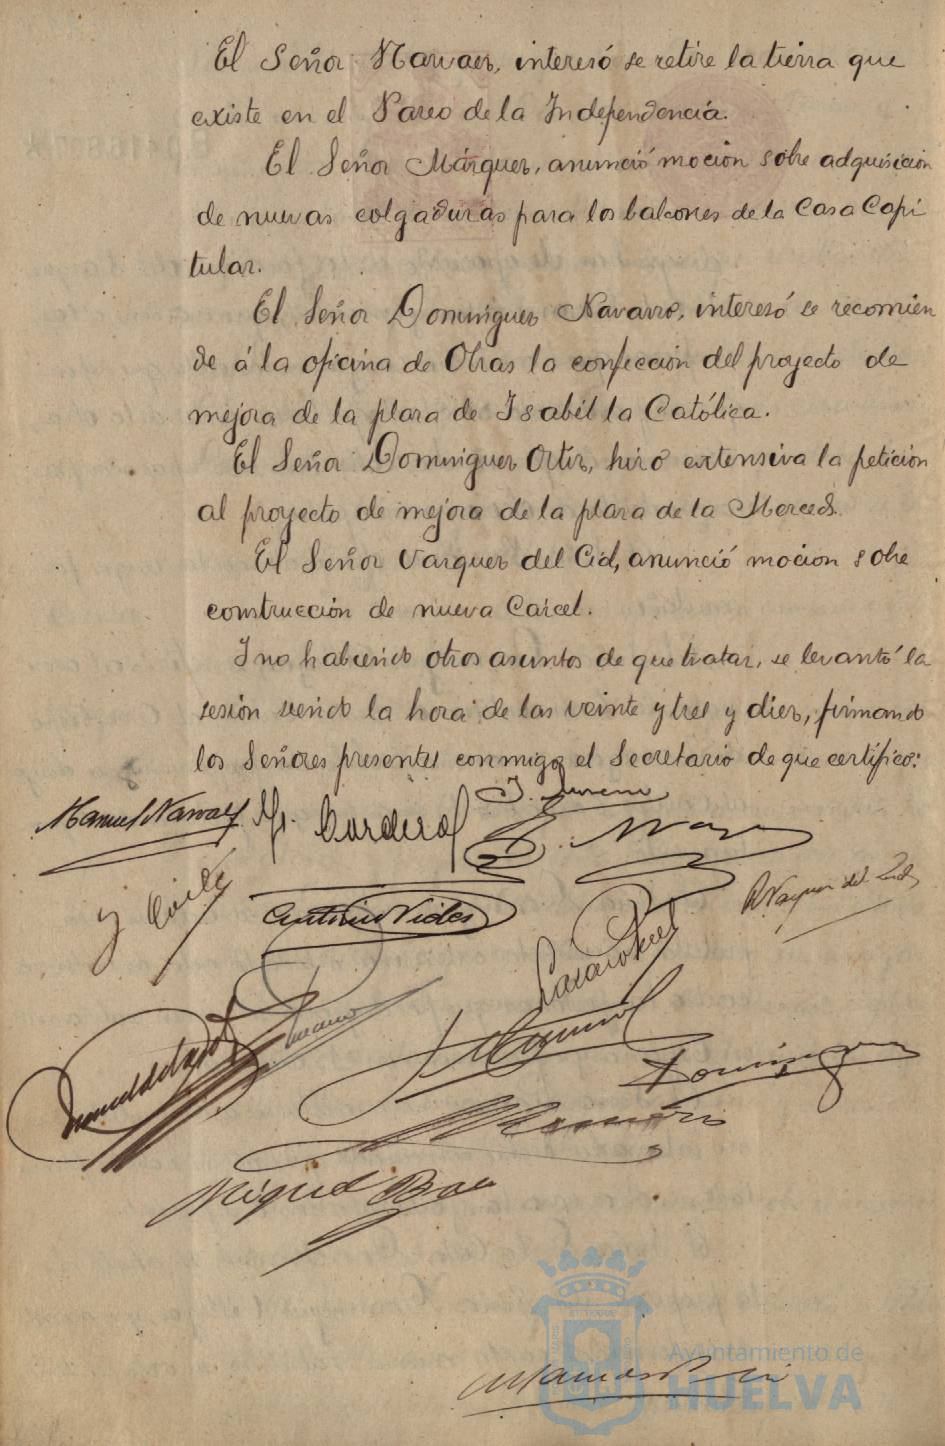 El Señor Narvaez, interesó se retire la tierra que
existe en el Paseo de la Independencia.
El Señor Márquez, anunció mocion sobre adquisicion
de nuevas colgaduras para los balcones de la Casa Capi
tular.
El Señor Dominguez Navarro, interesó se recomien
de á la oficina de Obras la confección del proyecto de
mejora de la plaza de Isabel la Católica.
El Señor Dominguez Ortiz, hizo extensiva la petición
al proyecto de mejora de la plaza de la Merced.
El Señor Vazquez del Cid, anunció mocion sobre
construcción de nueva Carcel.
Y no habiendo otros asuntos de que tratar, se levantó la
sesión siendo la hora de las veinte y tres y diez, firmando
los Señores presentes conmigo el Secretario de que certifico:
Manuel Narvaez
Cordero
Antonio Vides
R. Vazquez del Cid
Lazaro
Dominguez
Miguel Baez
Ayuntamiento de
HUELVA